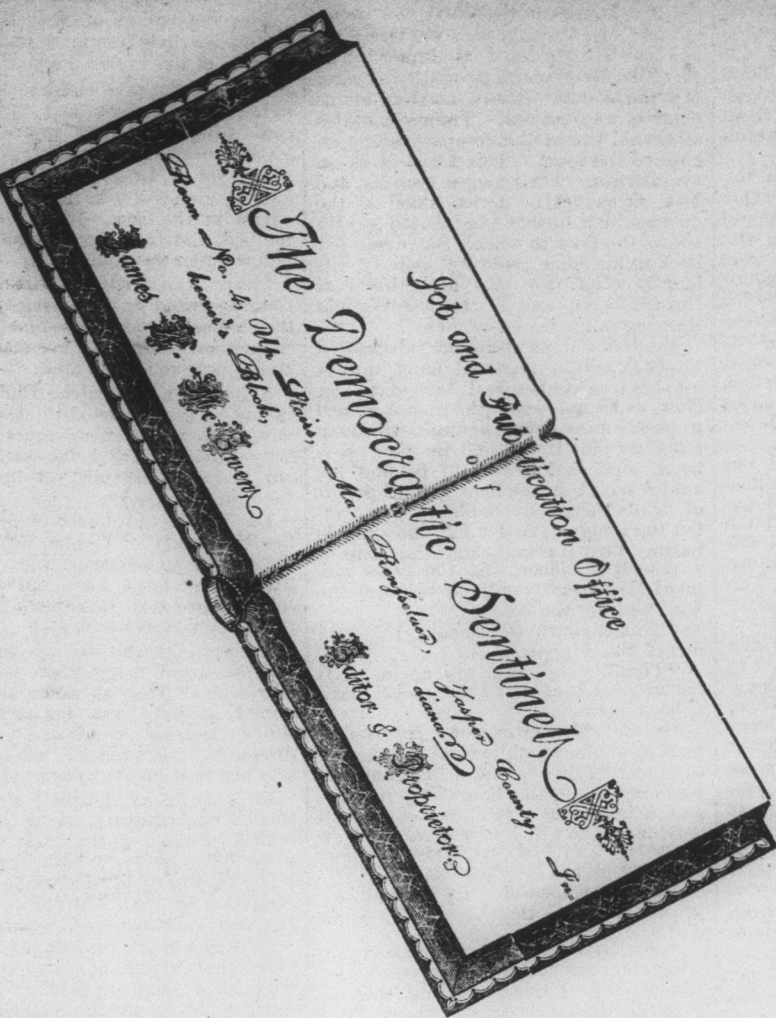 Job and Publication Office
of
The Democratic Sentinel,
Room No. 4, Up Stairs, Ma-
keever's Block,
Rensselaer, Jasper County, In=
diana.
James W. McEwen,
Editor & Proprietor